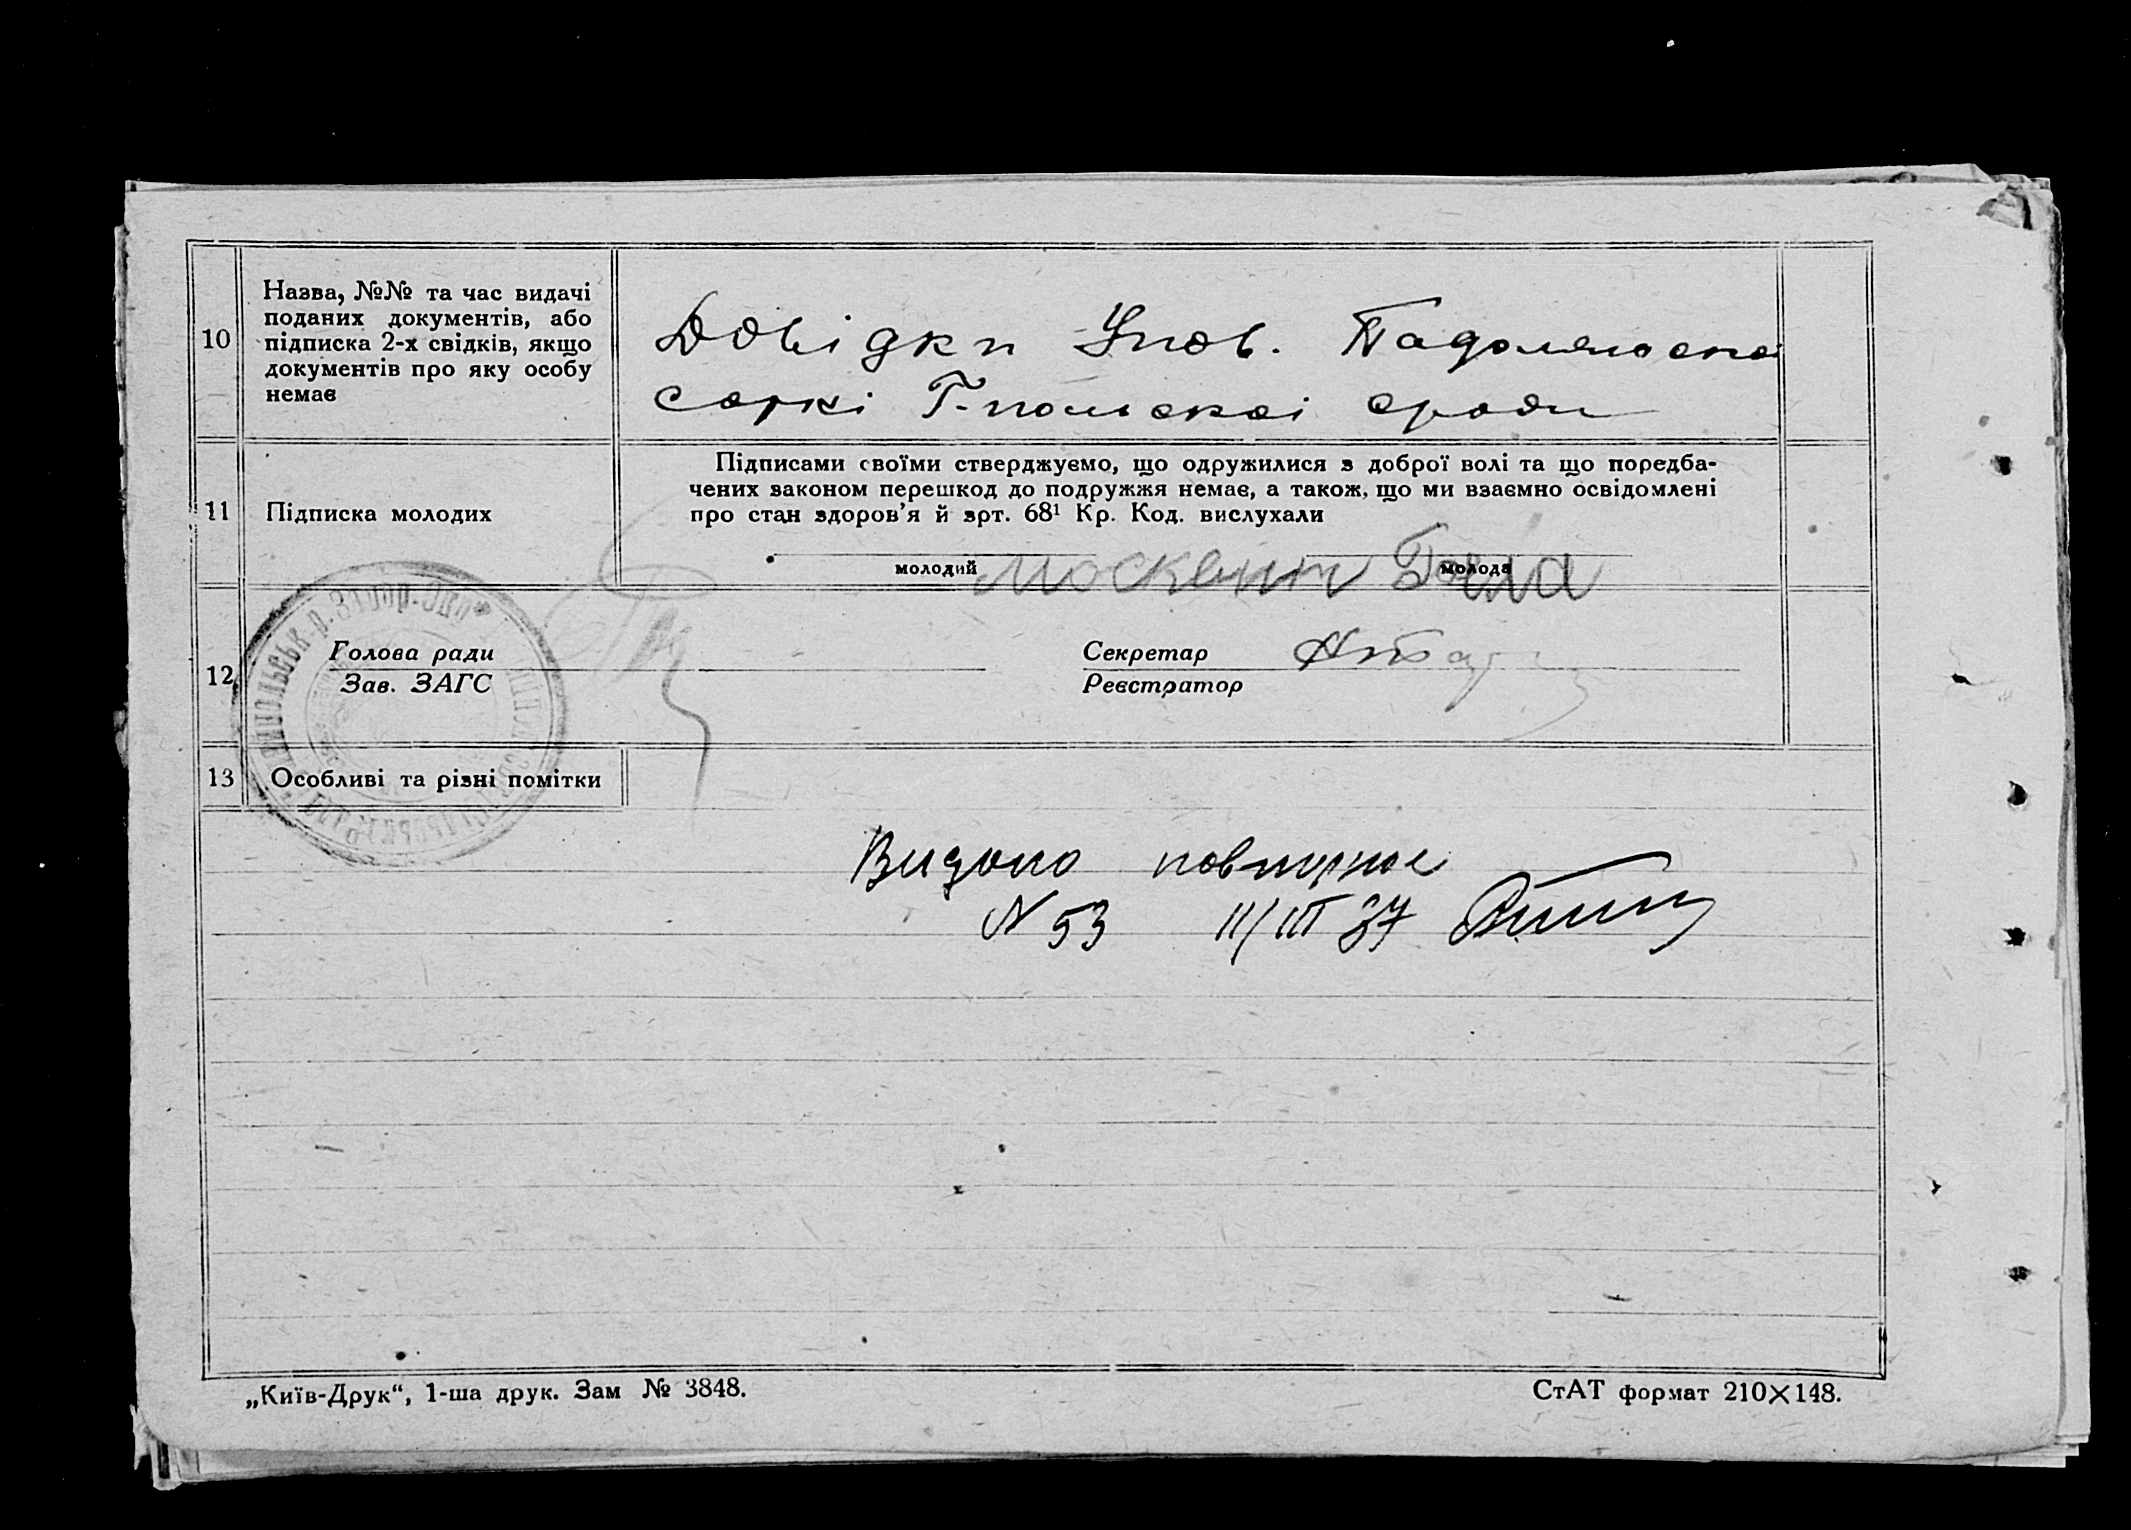 10
Назва, №№ та час видачі
поданих документів, або
підписка 2-х свідків, якщо
документів про яку особу
немає
Довідки Упов.
соткі Г-польскої сради
11
Підписка молодих
Підписами своїми стверджуємо, що одружилися з доброї волі та що поредба-
чених законом перешкод до подружжя немає, а також, що ми взаємно освідомлені
про стан здоров'я й зрт. 68¹ Кр. Код. вислухали
молодий
молода
12
Голова ради
Зав. ЗАГС
Секретар
Реєстратор
13
Особливі та різні помітки
Видано повторное
N 53 11/III 37
„Київ-Друк“, 1-ша друк. Зам № 3848.
СтАТ формат 210×148.